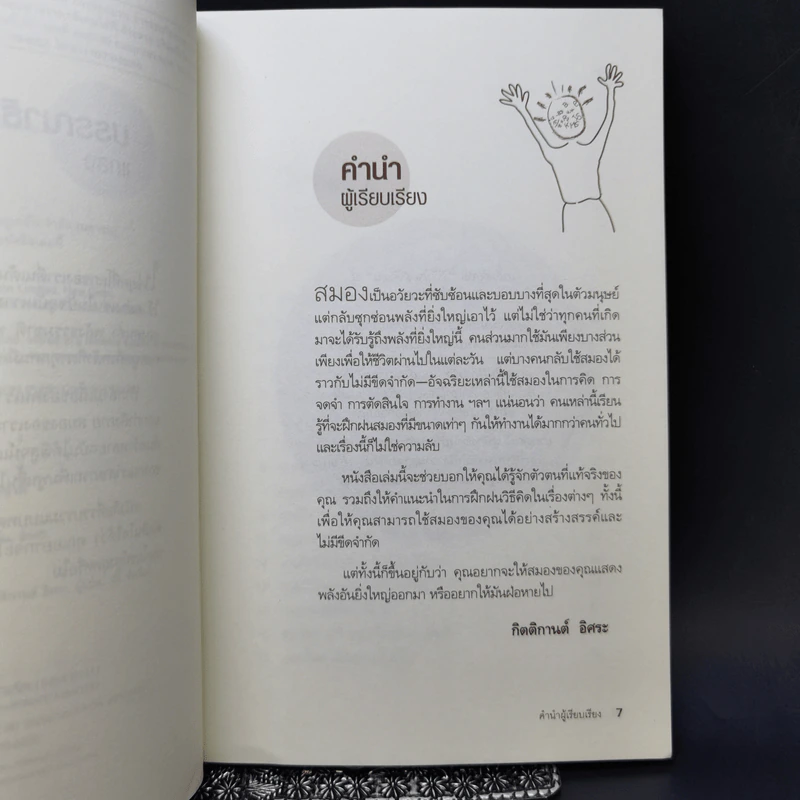 คำนำ
ผู้เรียบเรียง
สมองเป็นอวัยวะที่ซับซ้อนและบอบบางที่สุดในตัวมนุษย์
แต่กลับซุกซ่อนพลังที่ยิ่งใหญ่เอาไว้ แต่ไม่ใช่ว่าทุกคนที่เกิด
มาจะได้รับรู้ถึงพลังที่ยิ่งใหญ่นี้ คนส่วนมากใช้มันเพียงบางส่วน
เพียงเพื่อให้ชีวิตผ่านไปในแต่ละวัน แต่บางคนกลับใช้สมองได้
ราวกับไม่มีขีดจำกัด—อัจฉริยะเหล่านี้ใช้สมองในการคิด การ
จดจำ การตัดสินใจ การทำงาน ฯลฯ แน่นอนว่า คนเหล่านี้เรียน
รู้ที่จะฝึกฝนสมองที่มีขนาดเท่าๆ กันให้ทำงานได้มากกว่าคนทั่วไป
และเรื่องนี้ก็ไม่ใช่ความลับ
หนังสือเล่มนี้จะช่วยบอกให้คุณได้รู้จักตัวตนที่แท้จริงของ
คุณ รวมถึงให้คำแนะนำในการฝึกฝนวิธีคิดในเรื่องต่างๆ ทั้งนี้
เพื่อให้คุณสามารถใช้สมองของคุณได้อย่างสร้างสรรค์และ
ไม่มีขีดจำกัด
แต่ทั้งนี้ก็ขึ้นอยู่กับว่า คุณอยากจะให้สมองของคุณแสดง
พลังอันยิ่งใหญ่ออกมา หรืออยากให้มันฝ่อหายไป
กิตติกานต์ อิศระ
คำนำผู้เรียบเรียง 7